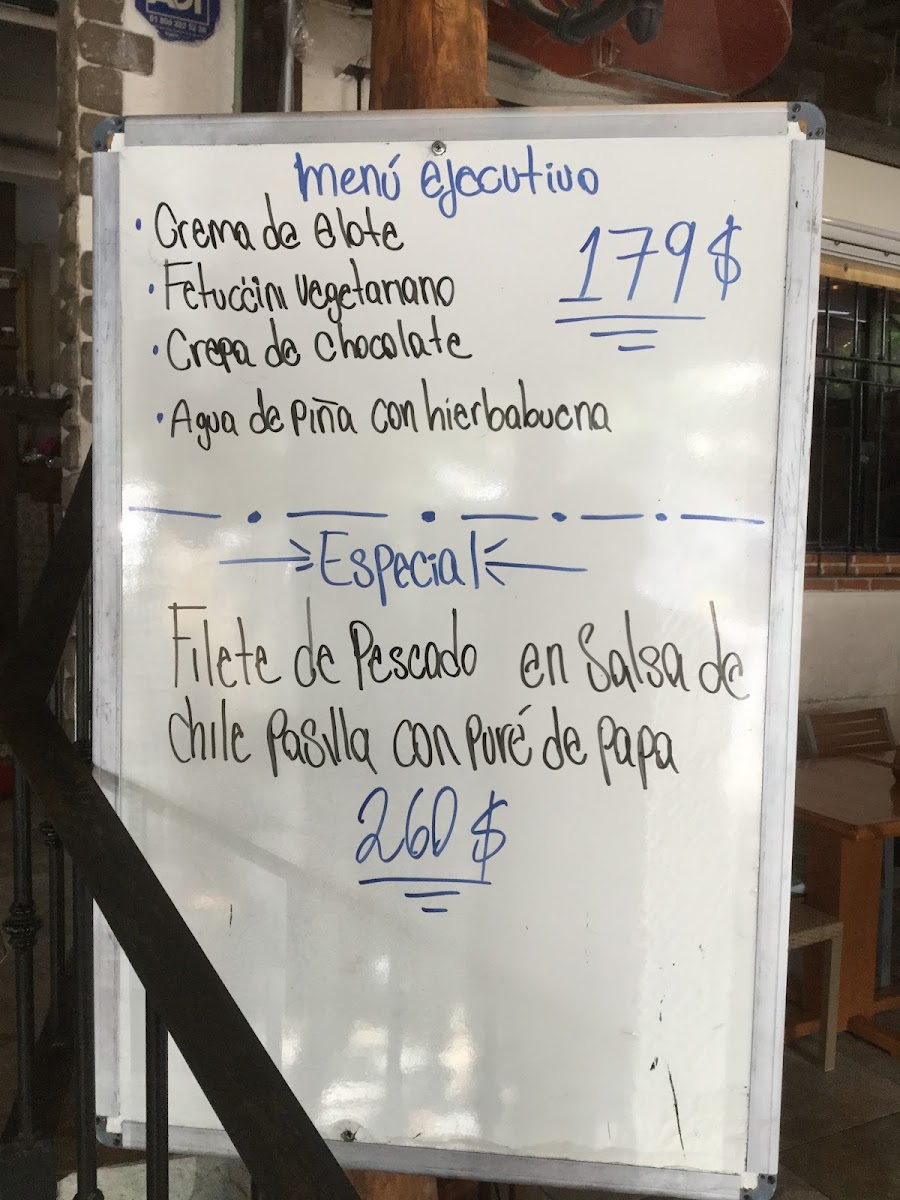 ADT
menú ejecutivo
· Crema de elote
179$
· Fetuccini vegetariano
· Crepa de chocolate
· Agua de piña con hierbabuena
Especial
Filete de Pescado en Salsa de
chile pasilla con puré de papa
260$